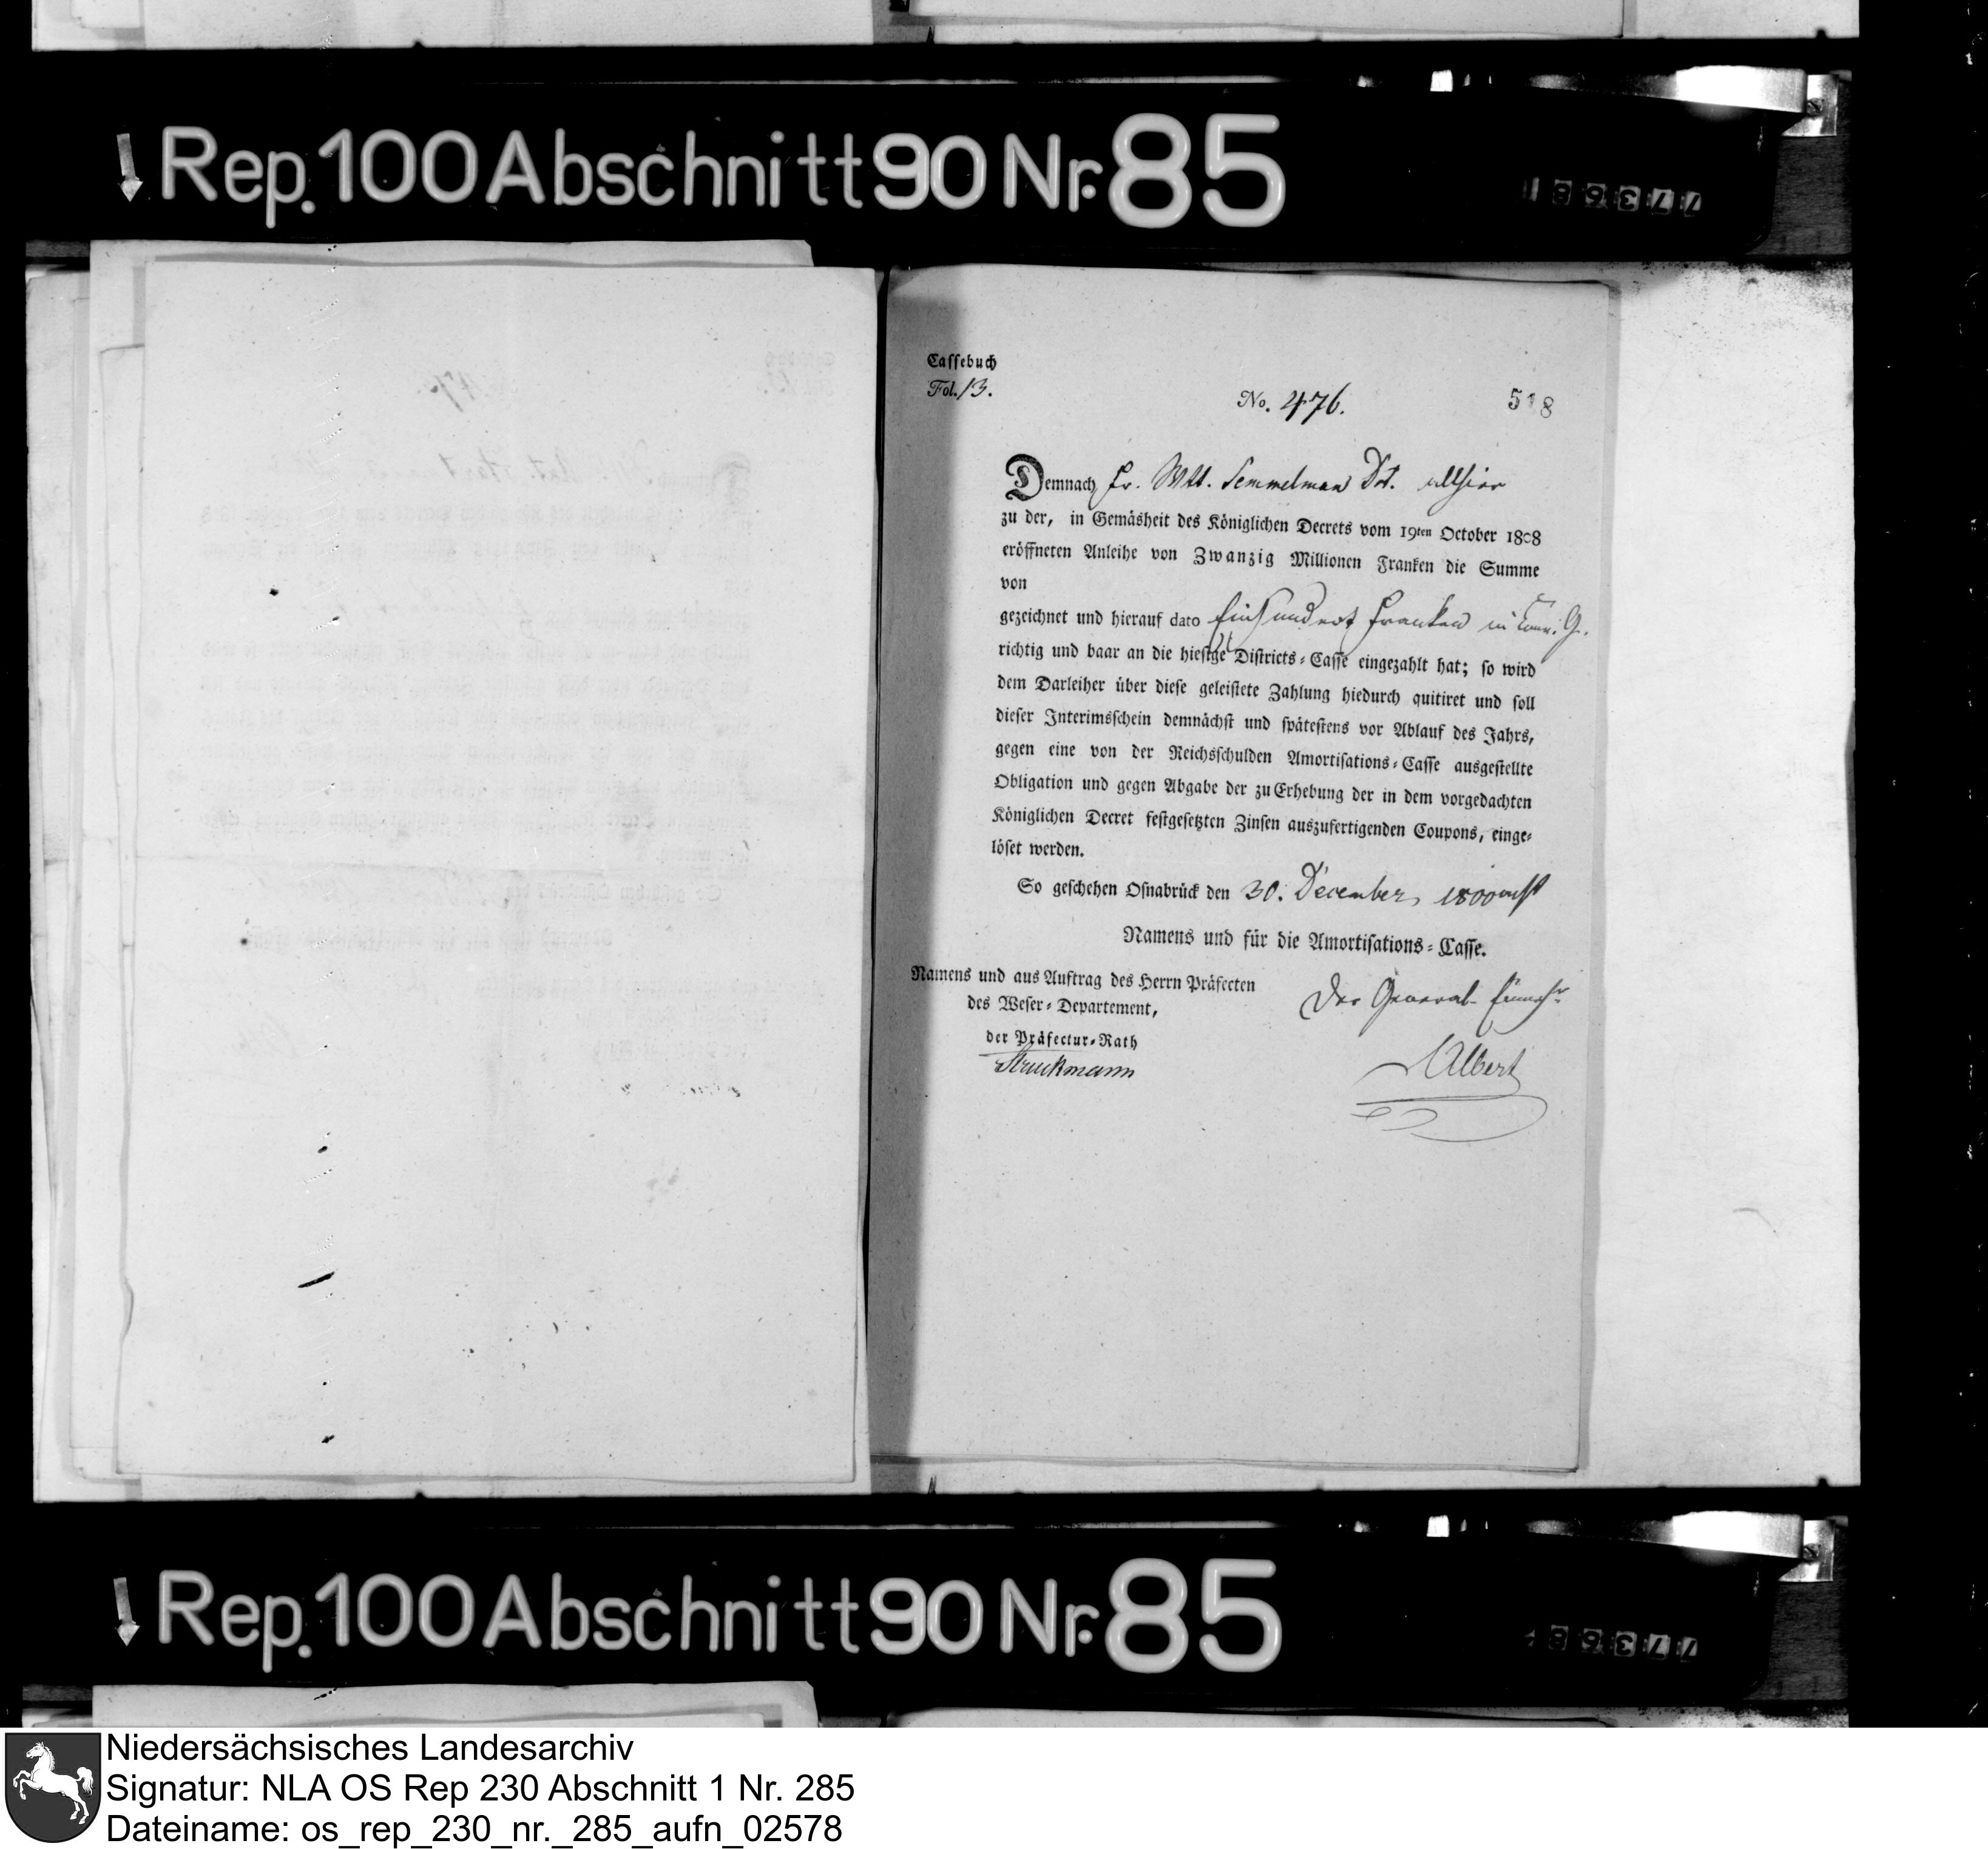 Rep. 100 Abschnitt 90 Nr. 85
Cassebuch
Fol. 13.
No. 476.
518
Demnach Fr. Witt. Semmelman Dt. allhier
zu der, in Gemäsheit des Königlichen Decrets vom 19ten October 1808
eröffneten Anleihe von Zwanzig Millionen Franken die Summe
von
gezeichnet und hierauf dato Einhundert Franken in Conv. G.
richtig und baar an die hiesige Districts-Casse eingezahlt hat; so wird
dem Darleiher über diese geleistete Zahlung hiedurch quitiret und soll
dieser Interimsschein demnächst und spätestens vor Ablauf des Jahrs,
gegen eine von der Reichsschulden Amortisations-Casse ausgestellte
Obligation und gegen Abgabe der zu Erhebung der in dem vorgedachten
Königlichen Decret festgesetzten Zinsen auszufertigenden Coupons, einge-
löset werden.
So geschehen Osnabrück den 30. December 1800
Namens und für die Amortisations-Casse.
Namens und aus Auftrag des Herrn Präfecten
des Weser-Departement,
der Präfectur-Rath
Struckmann
Der General-Einnehr
Albert
Rep. 100 Abschnitt 90 Nr. 85
Niedersächsisches Landesarchiv
Signatur: NLA OS Rep 230 Abschnitt 1 Nr. 285
Dateiname: os_rep_230_nr._285_aufn_02578